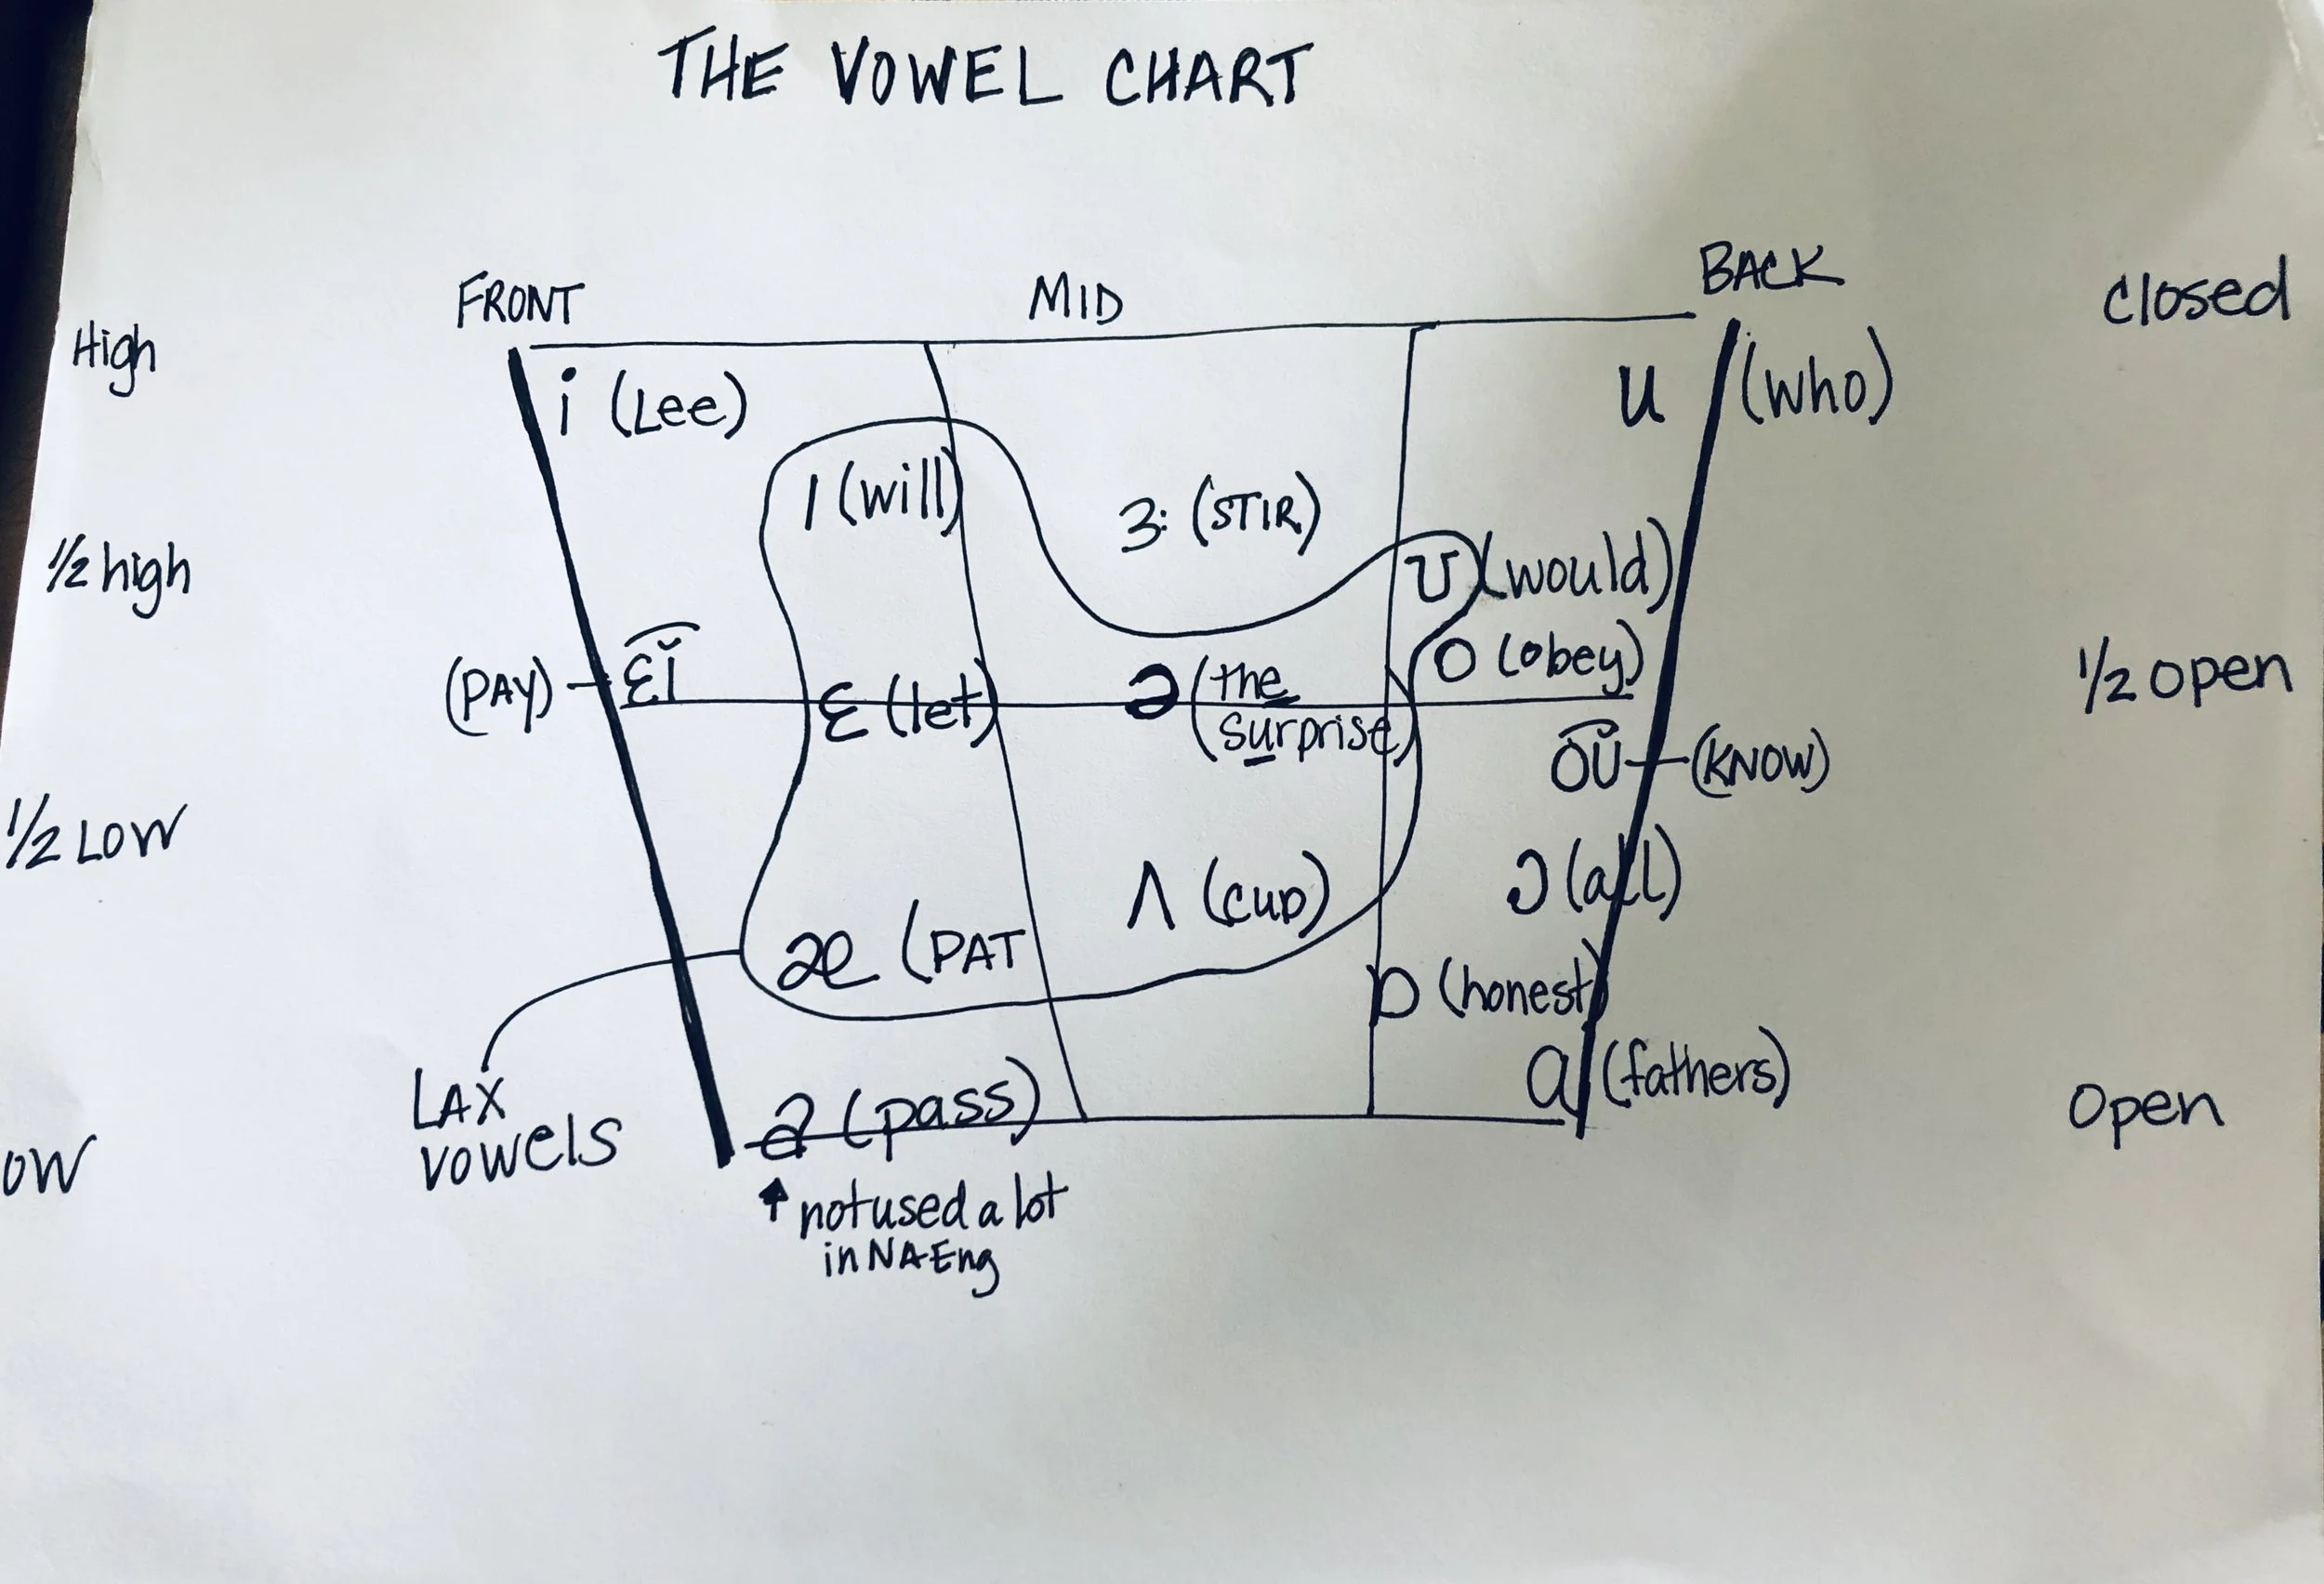 THE VOWEL CHART
FRONT MID BACK
High closed
i (Lee) u (who)
I (will) 3: (STIR)
1/2 high ʊ (would)
o (obey)
(PAY) ɛĭ ɛ (let) ə (the 1/2 open
surprise)
oŭ (KNOW)
1/2 LOW ɔ (all)
ʌ (cup)
æ (PAT ɒ (honest)
LAX a (pass) ɑ (fathers) open
VOWELS
OW
↑ not used a lot
in NA Eng